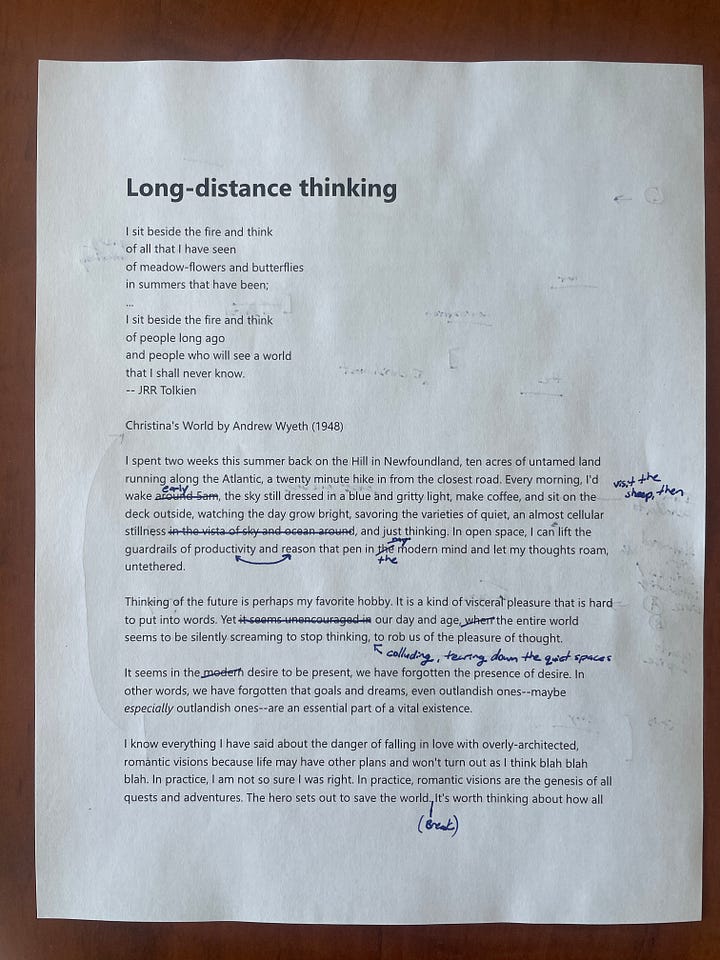 Long-distance thinking
I sit beside the fire and think
of all that I have seen
of meadow-flowers and butterflies
in summers that have been;
...
I sit beside the fire and think
of people long ago
and people who will see a world
that I shall never know.
-- JRR Tolkien
Christina's World by Andrew Wyeth (1948)
I spent two weeks this summer back on the Hill in Newfoundland, ten acres of untamed land
running along the Atlantic, a twenty minute hike in from the closest road. Every morning, I'd
visit the
early
sheep, then
wake around 5am, the sky still dressed in a blue and gritty light, make coffee, and sit on the
deck outside, watching the day grow bright, savoring the varieties of quiet, an almost cellular
stillness in the vista of sky and ocean around, and just thinking. In open space, I can lift the
my
guardrails of productivity and reason that pen in the modern mind and let my thoughts roam,
the
untethered.
Thinking of the future is perhaps my favorite hobby. It is a kind of visceral pleasure that is hard
to put into words. Yet it seems unencouraged in our day and age, when the entire world
seems to be silently screaming to stop thinking, to rob us of the pleasure of thought.
colluding, tearing down the quiet spaces
It seems in the modern desire to be present, we have forgotten the presence of desire. In
other words, we have forgotten that goals and dreams, even outlandish ones--maybe
especially outlandish ones--are an essential part of a vital existence.
I know everything I have said about the danger of falling in love with overly-architected,
romantic visions because life may have other plans and won't turn out as I think blah blah
blah. In practice, I am not so sure I was right. In practice, romantic visions are the genesis of all
quests and adventures. The hero sets out to save the world. It's worth thinking about how all
(break)